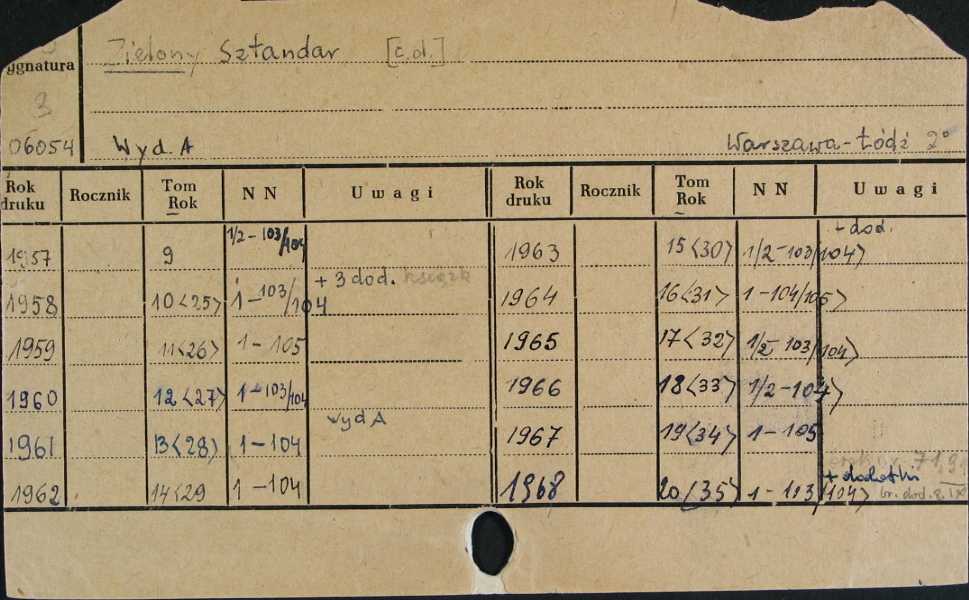 Zielony Sztandar [c.d.]
ygnatura
3
06054 Wyd. A Warszawa-Łódź 2°
Rok druku Rocznik Tom Rok N N Uwagi Rok druku Rocznik Tom Rok N N Uwagi
1957 9 1/2-103/104 1963 15<30> 1/2-103/104> + dod.
1958 10<25> 1-103/104 + 3 dod. 1964 16<31> 1-104/105>
1959 11<26> 1-105 1965 17<32> 1/2-103/104>
1960 12<27> 1-103/104 1966 18<33> 1/2-104>
1961 13<28> 1-104 wyd A 1967 19<34> 1-105
1962 14<29 1-104 1968 20/35> 1-103/104> + dodatki